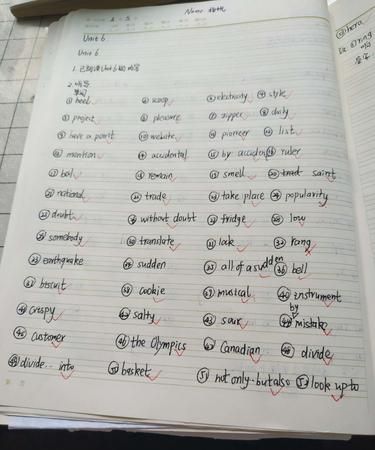 Name
Unit 6
Unit 6
① heel ② scoop ③ electricity ④ style
⑤ project ⑥ pleasure ⑦ zipper ⑧ daily
⑨ have a point ⑩ website ⑪ pioneer ⑫ list
⑬ mention ⑭ accidental ⑮ by accident ⑯ ruler
⑰ boil ⑱ remain ⑲ smell ⑳ saint
㉑ national ㉒ trade ㉓ take place ㉔ popularity
㉕ doubt ㉖ without doubt ㉗ fridge ㉘ low
㉙ somebody ㉚ translate ㉛ lock ㉜ rang
㉝ earthquake ㉞ sudden ㉟ all of a sudden ㊱ bell
㊲ biscuit ㊳ cookie ㊴ musical ㊵ instrument
crispy salty sour by mistake
customer the Olympics Canadian divide
divide... into basket not only... but also look up to